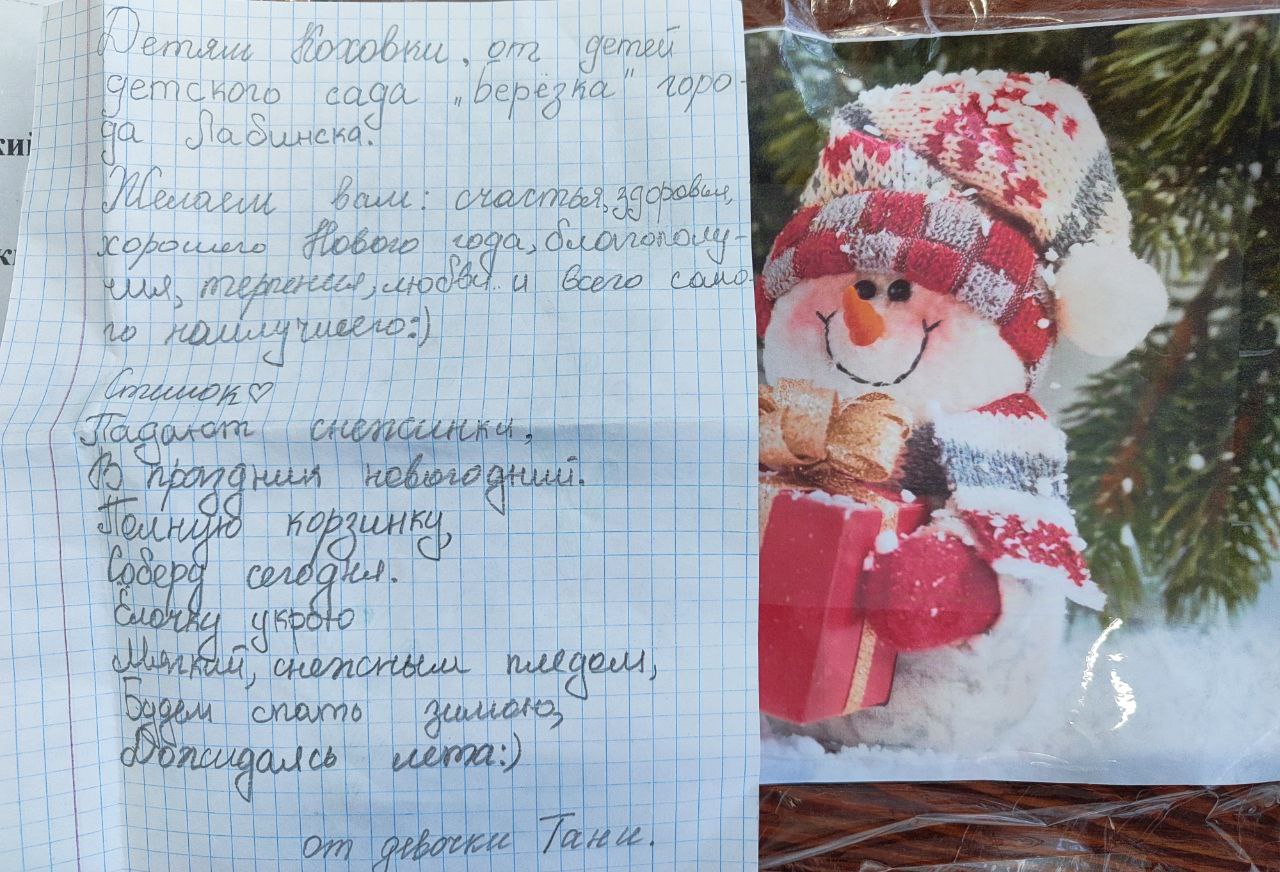 Детям Каховки, от детей
детского сада „Берёзка" горо-
да Лабинска.
Желаем вам: счастья, здоровья,
хорошего Нового года, благополу-
чия, терпения, любви и всего само-
го наилучшего:)
Стишок♡
Падают снежинки,
В праздник новогодний.
Полную корзинку,
Соберу сегодня.
Ёлочку укрою
Мягкий, снежным пледом,
Будем спать зимою,
Дожидаясь лета:)
от девочки Тани.
кий